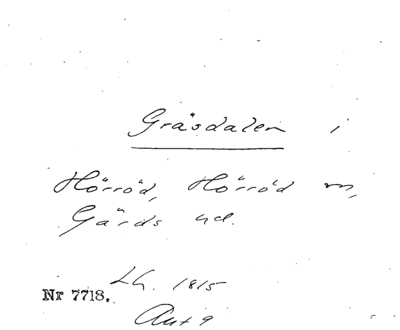 Gräsdalen i
Hörröd, Hörröd sn,
Gärds hd.
Lh. 1815
Nr 7718.
Akt 9